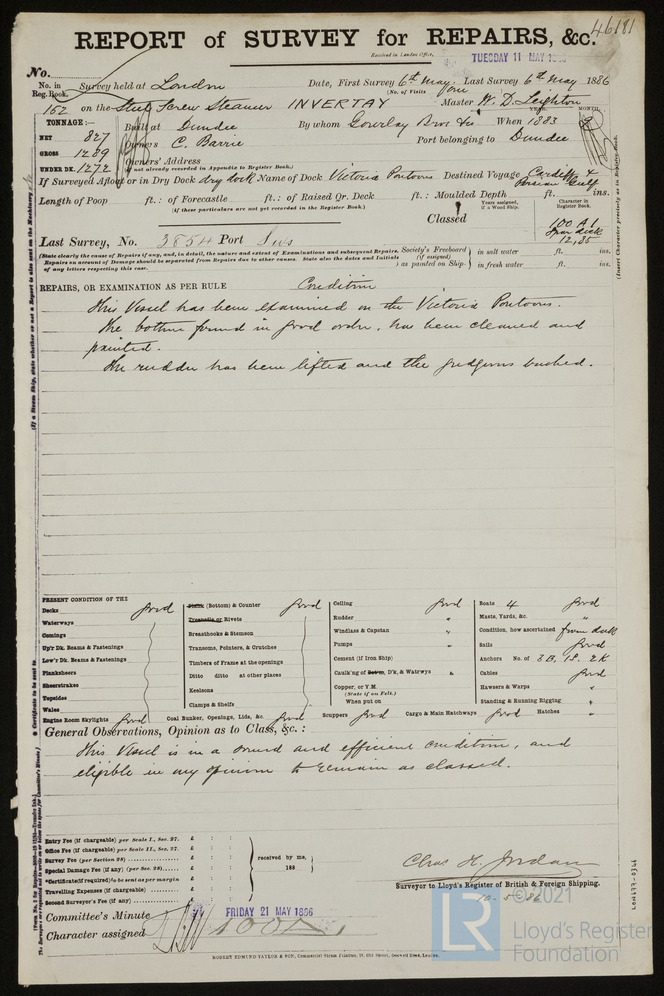 46181
REPORT of SURVEY for REPAIRS, &c.
Received in London Office,
TUESDAY 11 MAY
No.
No. in Reg. Book.
Survey held at London Date, First Survey 6th May. Last Survey 6th May 1886
(No. of Visits one
162 on the Steel Screw Steamer INVERTAY Master W. D. Leighton
TONNAGE:—
NET 827
GROSS 1289
UNDER DK. 1272
Built at Dundee By whom Gourlay Bros & Co. When 1883
YEAR. MONTH.
Owners C. Barrie Port belonging to Dundee
Owners' Address
(if not already recorded in Appendix to Register Book.)
If Surveyed Afloat or in Dry Dock dry dock Name of Dock Victoria Pontoons Destined Voyage Cardiff & Persian Gulf
Length of Poop ft.: of Forecastle ft.: of Raised Qr. Deck ft.: Moulded Depth ft. ins.
(if these particulars are not yet recorded in the Register Book.)
Classed
Years assigned, if a Wood Ship.
Character in Register Book.
100 A1
Spar deck
12,85
Last Survey, No. 3854 Port
(State clearly the cause of Repairs if any, and, in detail, the nature and extent of Examinations and subsequent Repairs.
Repairs on account of Damage should be separated from Repairs due to other causes. State also the dates and Initials
of any letters respecting this case.
Society's Freeboard (if assigned) as painted on Ship in salt water ft. ins.
in fresh water ft. ins.
REPAIRS, OR EXAMINATION AS PER RULE Condition
This Vessel has been examined on the Victoria Pontoons.
The bottom found in good order, has been cleaned and
painted.
The rudder has been lifted and the gudgeons bushed.
PRESENT CONDITION OF THE
Decks good
Waterways
Comings
Up'r Dk. Beams & Fastenings
Low'r Dk. Beams & Fastenings
Planksheers
Sheerstrakes
Topsides
Wales
Engine Room Skylights good
Plank (Bottom) & Counter good
Treenails or Rivets
Breasthooks & Stemson
Transoms, Pointers, & Crutches
Timbers of Frame at the openings
Ditto ditto at other places
Keelsons
Clamps & Shelfs
Coal Bunker, Openings, Lids, &c. good
Ceiling good
Rudder "
Windlass & Capstan "
Pumps "
Cement (if Iron Ship)
Caulk'ng of Bot'm, D'k, & Watrwys "
Copper, or Y.M.
(State if on Felt.)
When put on
Scuppers good Cargo & Main Hatchways good
Boats 4 good
Masts, Yards, &c. "
Condition, how ascertained from deck
Sails good
Anchors No. of 3B, 1S, 2K
Cables good
Hawsers & Warps "
Standing & Running Rigging "
Hatches "
General Observations, Opinion as to Class, &c.:
This Vessel is in a sound and efficient condition, and
eligible in my opinion to remain as classed.
Entry Fee (if chargeable) per Scale I., Sec. 27. £ : :
Office Fee (if chargeable) per Scale II., Sec. 27. £ : :
Survey Fee (per Section 28) £ : :
Special Damage Fee (if any) (per Sec. 28) £ : :
*Certificate (if required) to be sent as per margin £ : :
Travelling Expenses (if chargeable) £ : :
Second Surveyor's Fee (if any) £ : :
received by me,
188
Chas H. Jordan
Surveyor to Lloyd's Register of British & Foreign Shipping.
10-5-86
Committee's Minute FRIDAY 21 MAY 1886
Character assigned 100A1
ROBERT EDMUND TAYLOR & SON,
©2021
LR
Lloyd's Register
Foundation